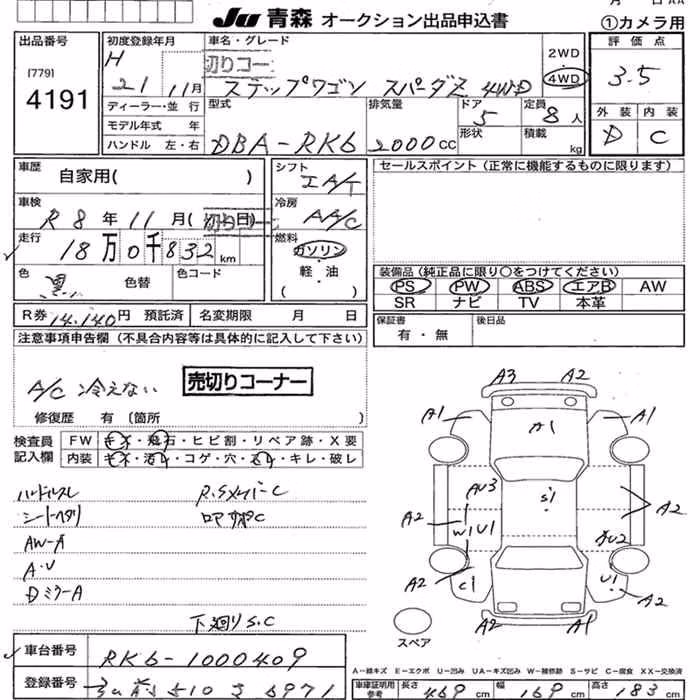 JU 青森 オークション出品申込書
月 日 AA
①カメラ用
出品番号
[779]
4191
初度登録年月
H
21 11月
ディーラー・並 行
モデル年式 年
ハンドル 左・右
車名・グレード
切りコー
ステップワゴン スパーダZ 4WD
2WD
4WD
型式
DBA-RK6
排気量
2000 CC
ドア
5
形状
定員
8 人
積載
kg
評価点
3.5
外装 内装
D C
車歴
自家用( )
車検
R 8 年 11 月 ( 日)
切りコー
走行
18 万 0 千 832 km
色
黒
色替
色コード
シフト
IA/T
冷房
AA/C
燃料
ガソリン
軽・油
( )
セールスポイント (正常に機能するものに限ります)
装備品 (純正品に限り○をつけてください)
PS PW ABS エアB AW
SR ナビ TV 本革
保証書
有・無
後日品
R券 14,140円 預託済 名変期限 月 日
注意事項申告欄 (不具合内容等は具体的に記入して下さい)
A/C 冷えない
売切りコーナー
修復歴 有 (箇所 )
検査員
記入欄
FW キズ・飛石・ヒビ割・リペア跡・X要
内装 キズ・汚れ・コゲ・穴・スレ・キレ・破レ
ハンドルスレ
シートヘタリ
AW-A
A・U
DミラーA
下廻りS.C
A3 A2
A1 A1 A1
AU3
S1
A2 A2
W1 U1
A2
C1 U1
A2
A2 A1
スペア
A-線キズ E-エクボ U-凹み UA-キズ凹み W-補修跡 S-サビ C-腐食 XX-交換済
車台番号
RK6-1000409
登録番号
車庫証明用
参考
長さ 469 cm 幅 169 cm 高さ 183 cm